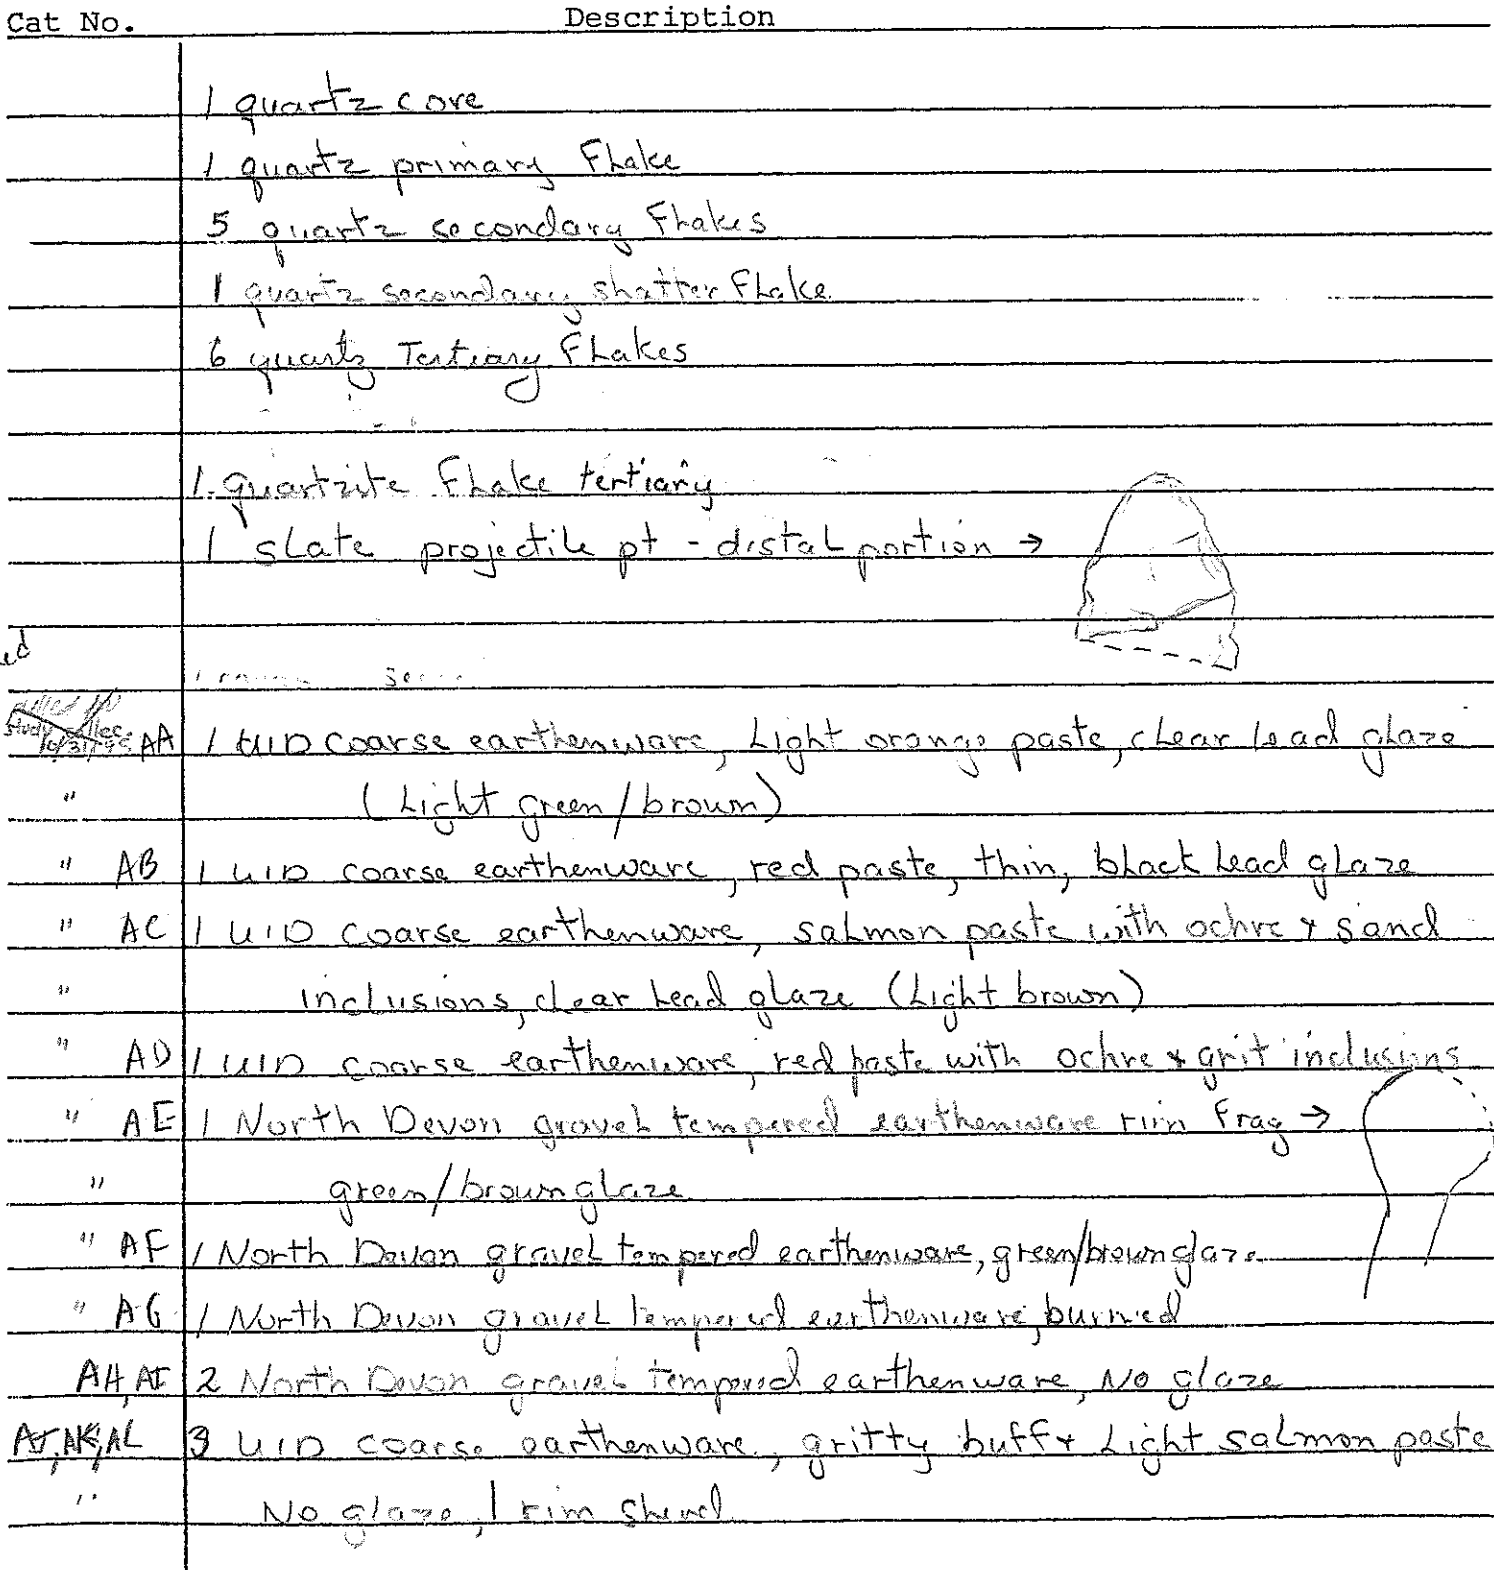 Cat No. Description
1 quartz core
1 quartz primary Flake
5 quartz secondary Flakes
1 quartz secondary shatter Flake
6 quartz Tertiary Flakes
1 quartzite Flake tertiary
1 slate projectile pt - distal portion →
ed
study collec.
AA 1 UID coarse earthenware, Light orange paste, clear lead glaze
" (Light green/brown)
" AB 1 UID coarse earthenware, red paste, thin, black Lead glaze
" AC 1 UID coarse earthenware, salmon paste with ochre + sand
" inclusions, clear Lead glaze (Light brown)
" AD 1 UID coarse earthenware, red paste with ochre + grit inclusions
" AE 1 North Devon gravel tempered earthenware rim Frag →
" green/brown glaze
" AF 1 North Devon gravel tempered earthenware, green/brown glaze
" AG 1 North Devon gravel tempered earthenware, burned
AH, AI 2 North Devon gravel tempered earthenware, No glaze
AJ, AK, AL 3 UID coarse earthenware, gritty buff + Light salmon paste
" No glaze, 1 rim sherd